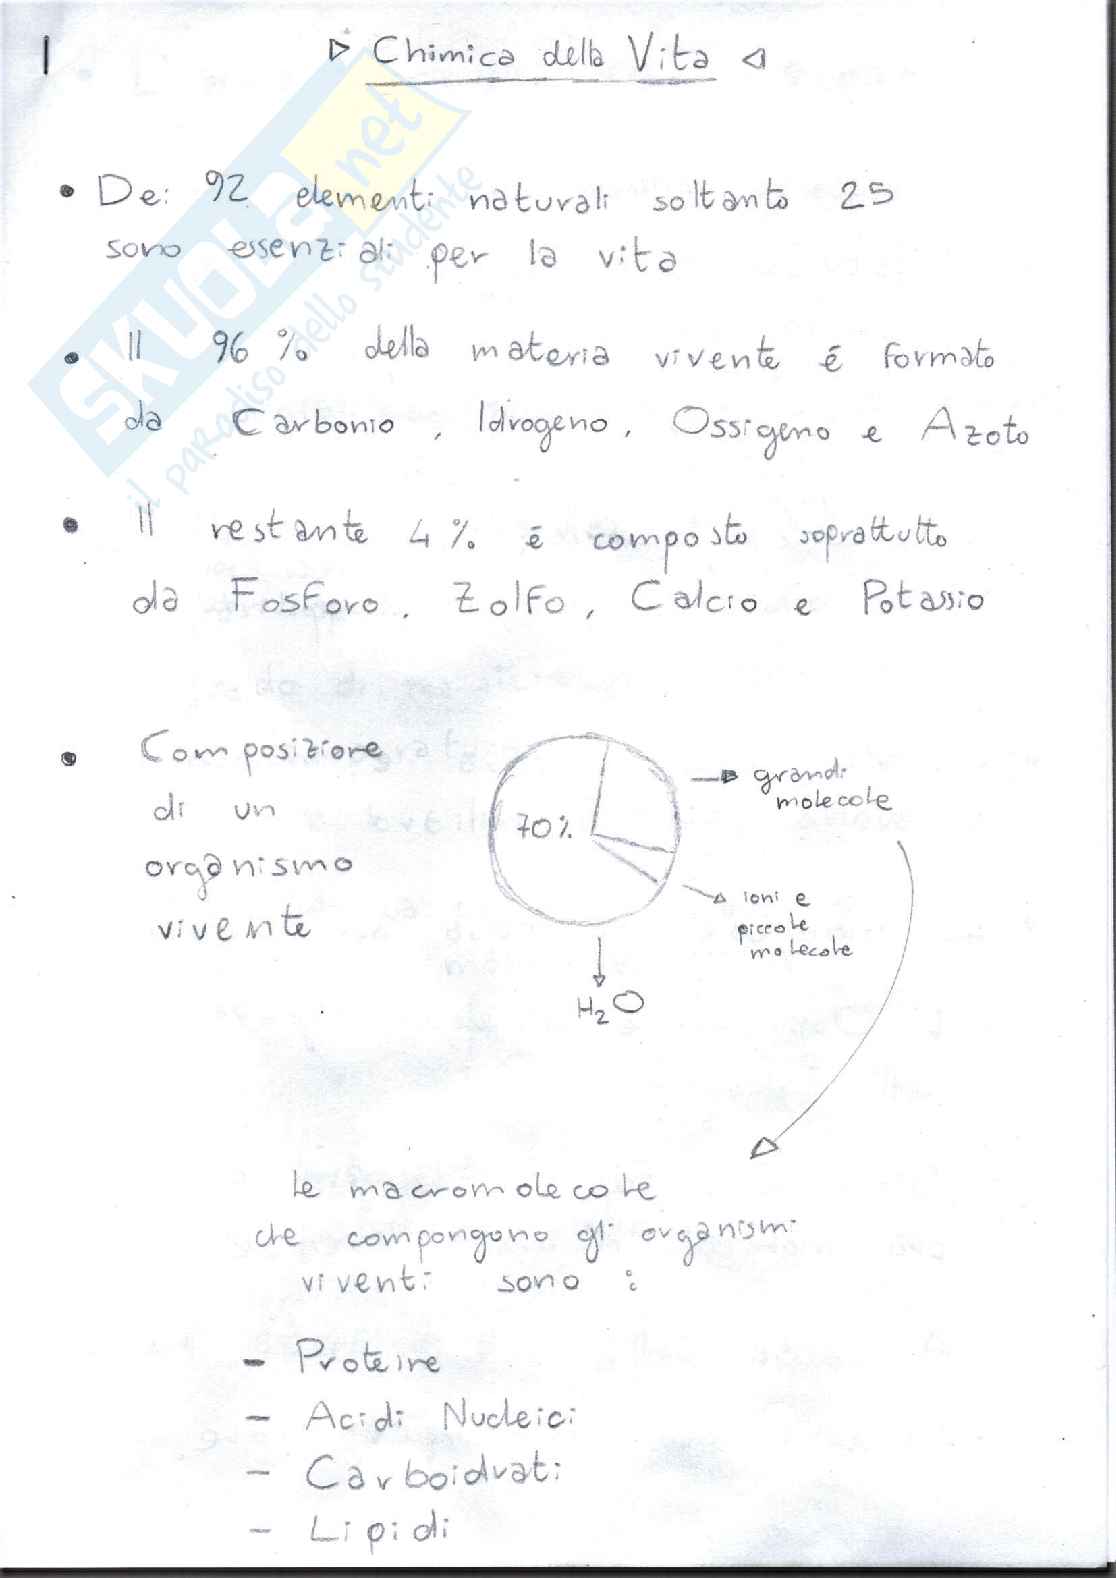 1
▷ Chimica della Vita ◁
• Dei 92 elementi naturali soltanto 25
sono essenziali per la vita
• Il 96 % della materia vivente é formato
da Carbonio, Idrogeno, Ossigeno e Azoto
• Il restante 4 % é composto soprattutto
da Fosforo, Zolfo, Calcio e Potassio
• Composizione
di un
organismo
vivente
70%
grandi
molecole
ioni e
piccole
molecole
H₂O
le macromolecole
che compongono gli organismi
viventi sono :
- Proteine
- Acidi Nucleici
- Carboidrati
- Lipidi
SKUOLA.net
il paradiso dello studente